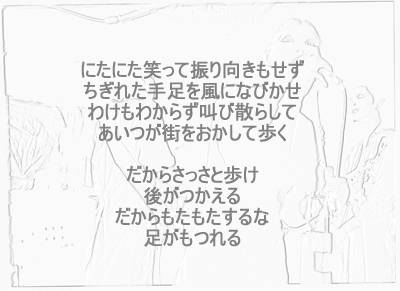 にたにた笑って振り向きもせず
ちぎれた手足を風になびかせ
わけもわからず叫び散らして
あいつが街をおかして歩く
だからさっさと歩け
後がつかえる
だからもたもたするな
足がもつれる